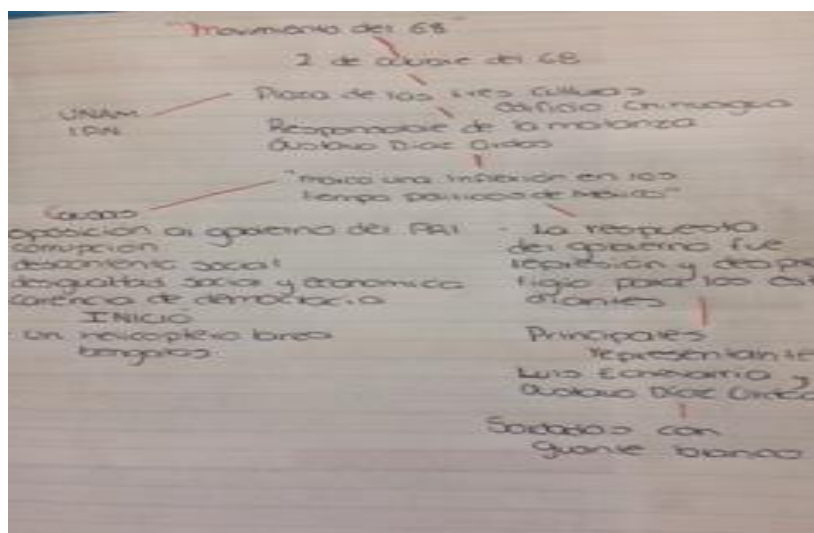 "Movimiento del 68"
2 de octubre del 68
Plaza de las tres culturas
edificio Chihuahua
UNAM
IPN
Responsable de la matanza
Gustavo Díaz Ordaz
"marco una inflexión en los
tiempo políticos de México"
Causas
oposición al gobierno del PRI
corrupción
descontento social
desigualdad social y economica
carencia de democracia
INICIO
Un helicoptero lanzo
bengalas
- La respuesta
del gobierno fue
represión y despres
tigio para los est
diantes
Principales
representante
Luis Echeverria y
Gustavo Díaz Ordaz
Soldados con
guante blanco